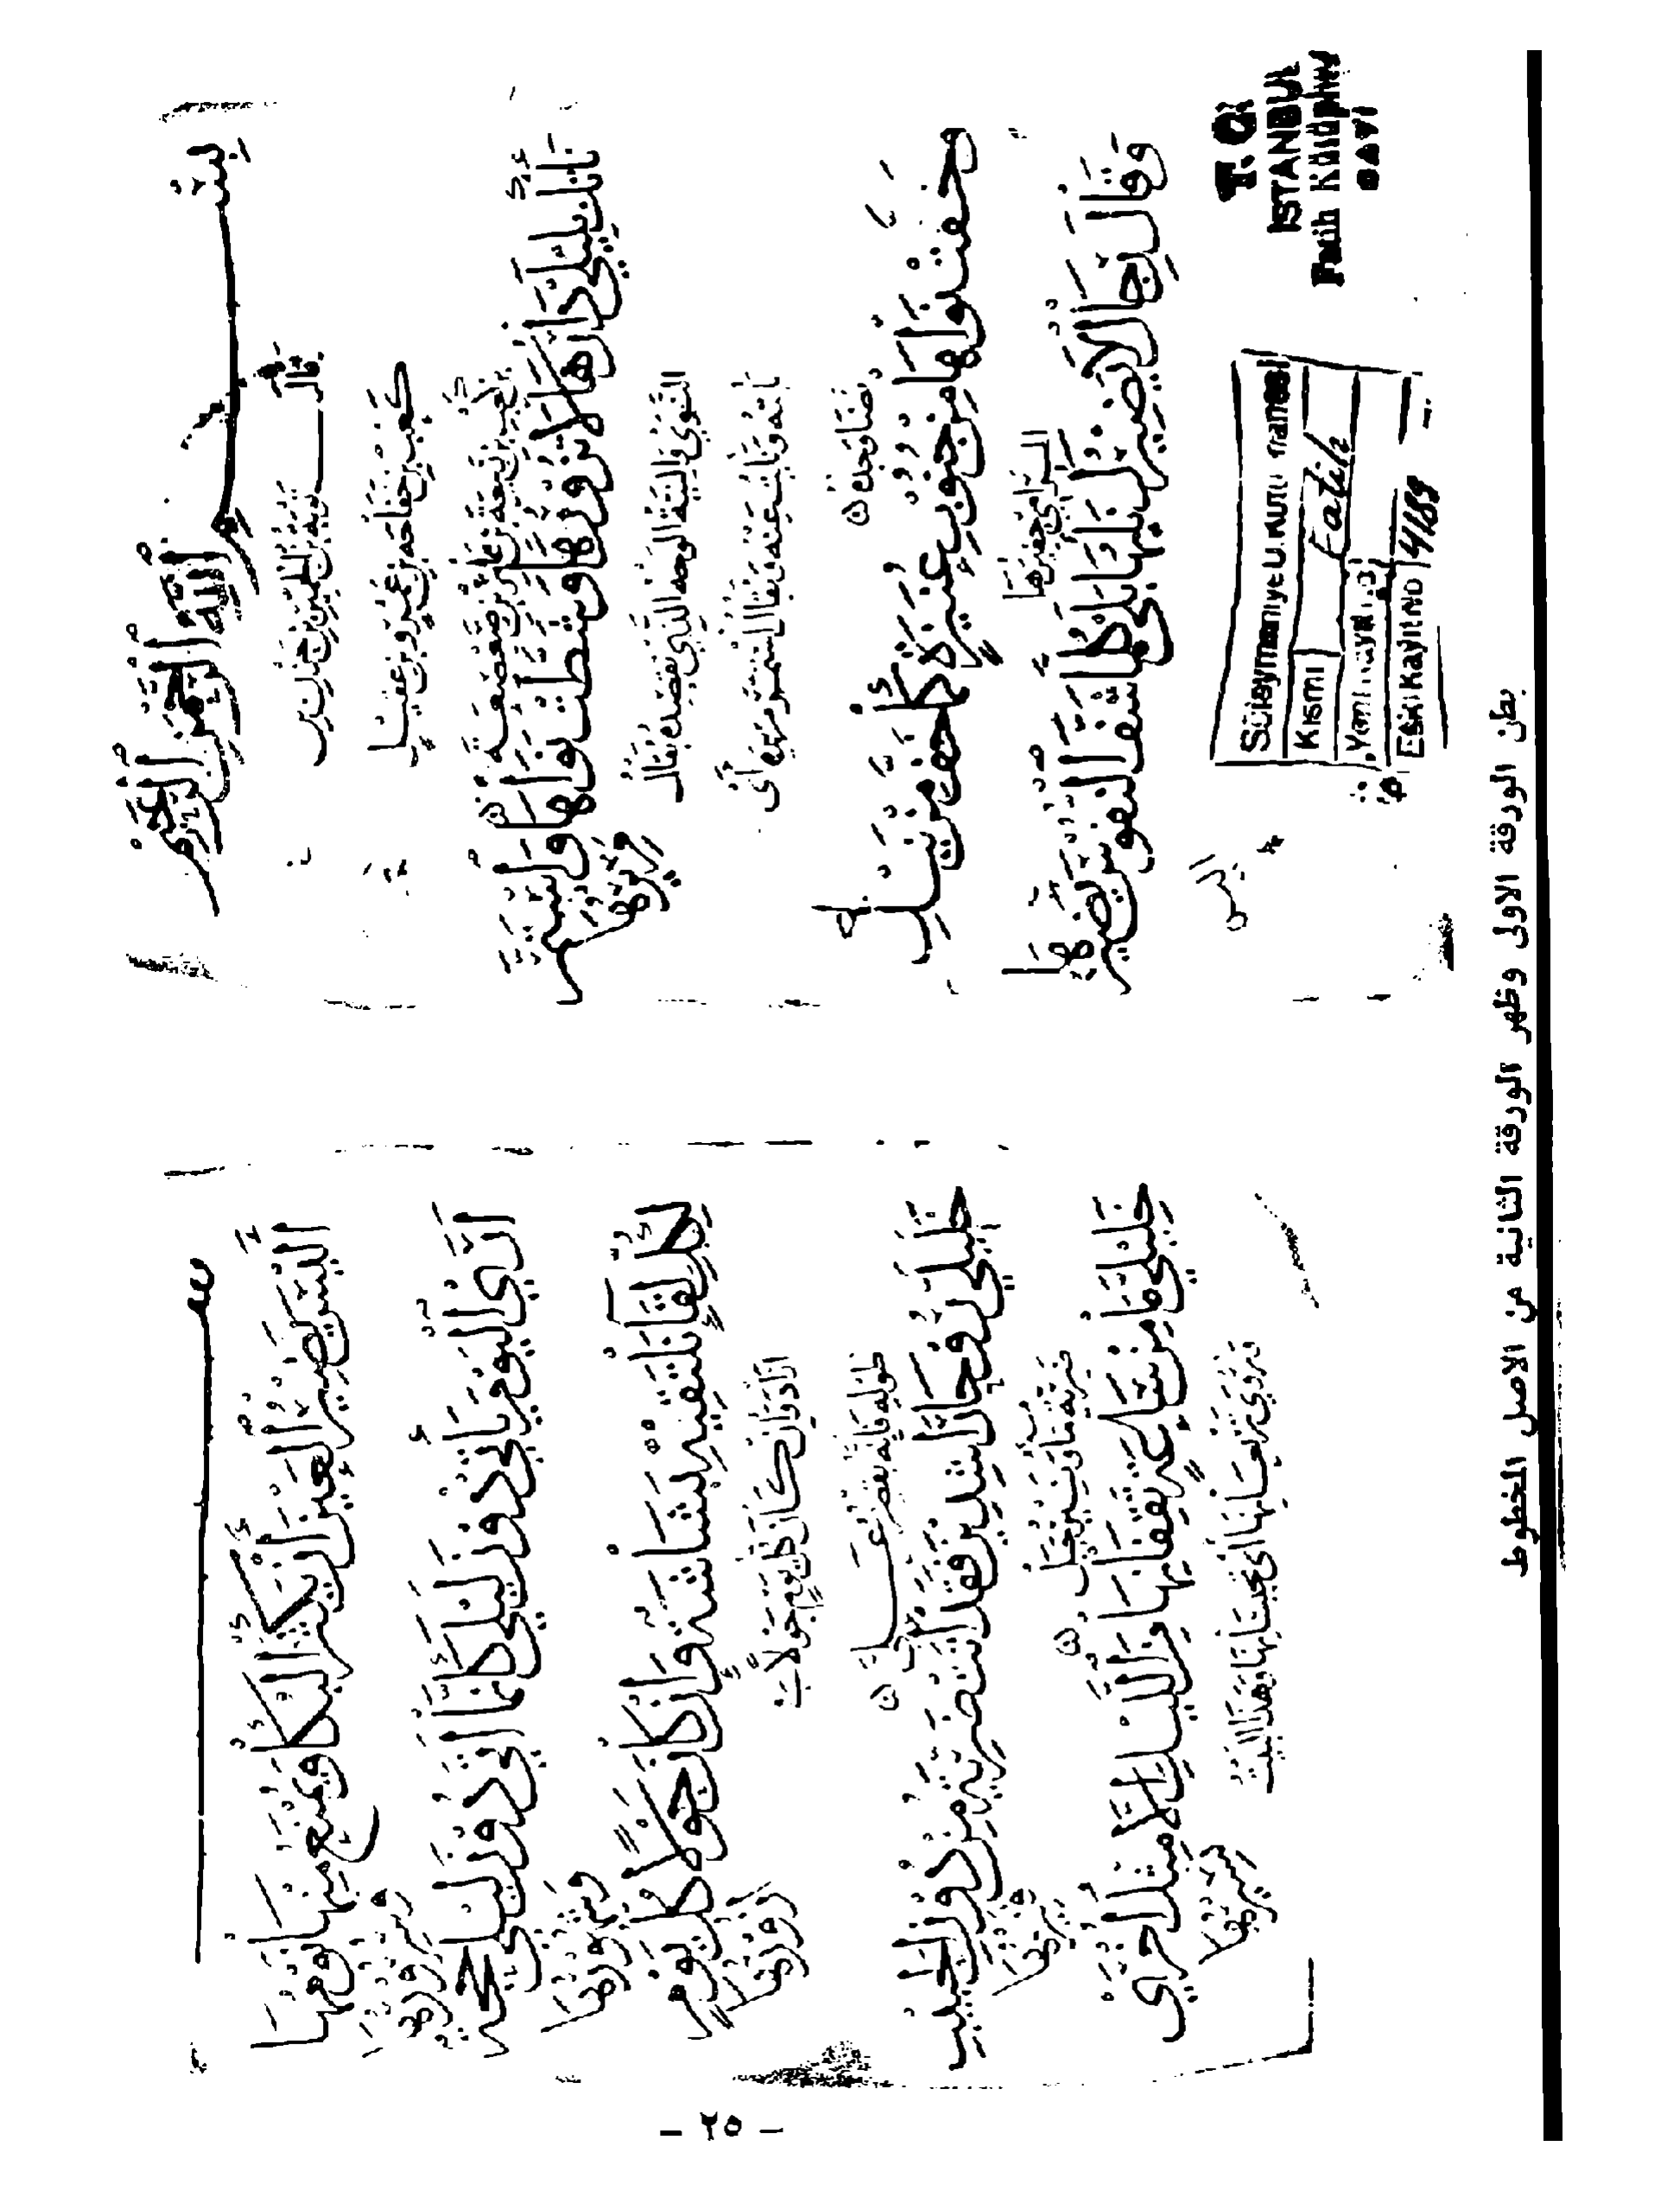 بسم الله الرحمن الرحيم
قال
توبة بن الحمير بن حزن بن
كعب بن خفاجة بن عمرو بن عقيل
بن كعب بن ربيعة بن عامر بن صعصعة
نَأَتْكَ بليلى دارها لا تزورها وشطت نواها واستمر مريرها
النوى والنية الوجه الذي تقصده يقال
نأته ونأيت عنه ويقال استمر مريره أي
وخفت نواها من جنوب عنيزة كما خف من نيل
المرامي جفيرها
وقال رجال لا يضيرك نأيها بلى كل ما شف النفوس يضيرها
اليس
T.C.
ISTANBUL
Fatih Kütüphi
Süleymaniye U. Kütü
Kısmı Fatih
Yeni Kayıt No
Eski Kayıt No 4189
أليس يضير العين أن تكثر البكا ويمنع منها نومها وسرورها
أرى اليوم يأتي دون ليلى كأنما أتى دون ليلى حجة وشهورها
لكل لقاء نلتقيه بشاشة وإن كان حولا كل يوم أزورها
أراد وإن كان كل يوم حولا من
طوله فإنه يقصر
خليلي روحا راشدين فقد أتت ضرية من دون الحبيب ونيرها
ضرية جبل
خليلي ما من ساعة تقفانها من الليل إلا مثل أخرى نسيرها
ويروى تربعانها أي تحبسانها وهذا البيت
بطن الورقة الاولى وظهر الورقة الثانية من الاصل المخطوط
- ٢٥ -